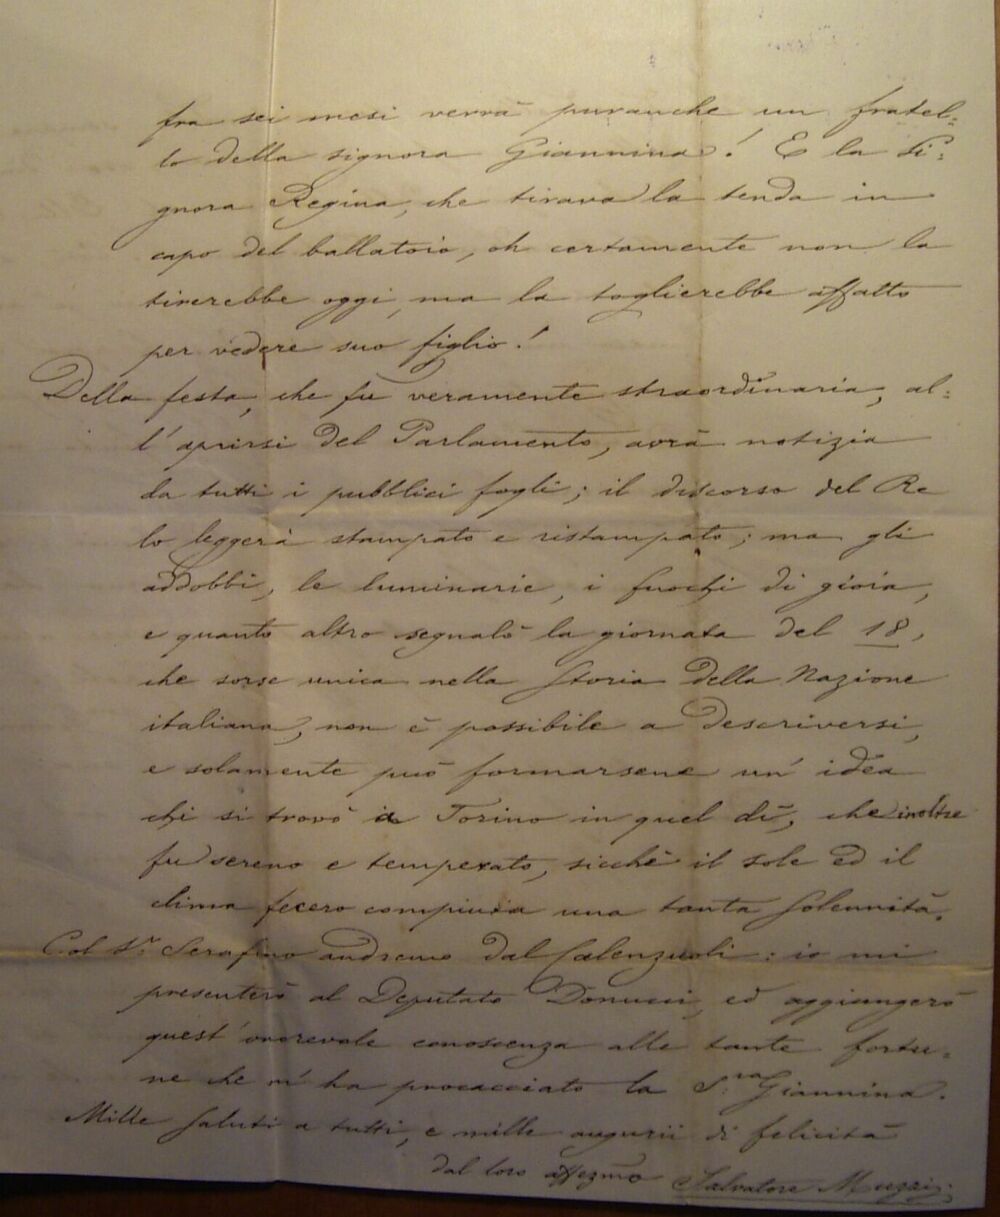 fra sei mesi verrà puranche un fratel-
lo della signora Giannina! E la Si-
gnora Regina, che tirava la tenda in
capo del ballatoio, oh certamente non la
tirerebbe oggi, ma la toglierebbe affatto
per vedere suo figlio!
Della festa, che fu veramente straordinaria, al-
l'aprirsi del Parlamento, avrà notizia
da tutti i pubblici fogli; il discorso del Re
lo leggerà stampato e ristampato; ma gli
addobbi, le luminarie, i fuochi di gioia,
e quanto altro segnalò la giornata del 18,
che sorse unica nella Storia della Nazione
italiana, non è possibile a descriversi,
e solamente può formarsene un'idea
chi si trovò a Torino in quel dì, che inoltre
fu sereno e temperato, sicchè il sole ed il
clima fecero compiuta una tanta Solennità.
Col Sr. Serafino andremo dal Calenzuoli: io mi
presenterò al Deputato Donucci, ed aggiungerò
quest'onorevole conoscenza alle tante fortu-
ne che m'ha procacciato la S.ra Giannina.
Mille Saluti a tutti, e mille augurii di felicità
dal loro affezmo Salvatore Muzzi.